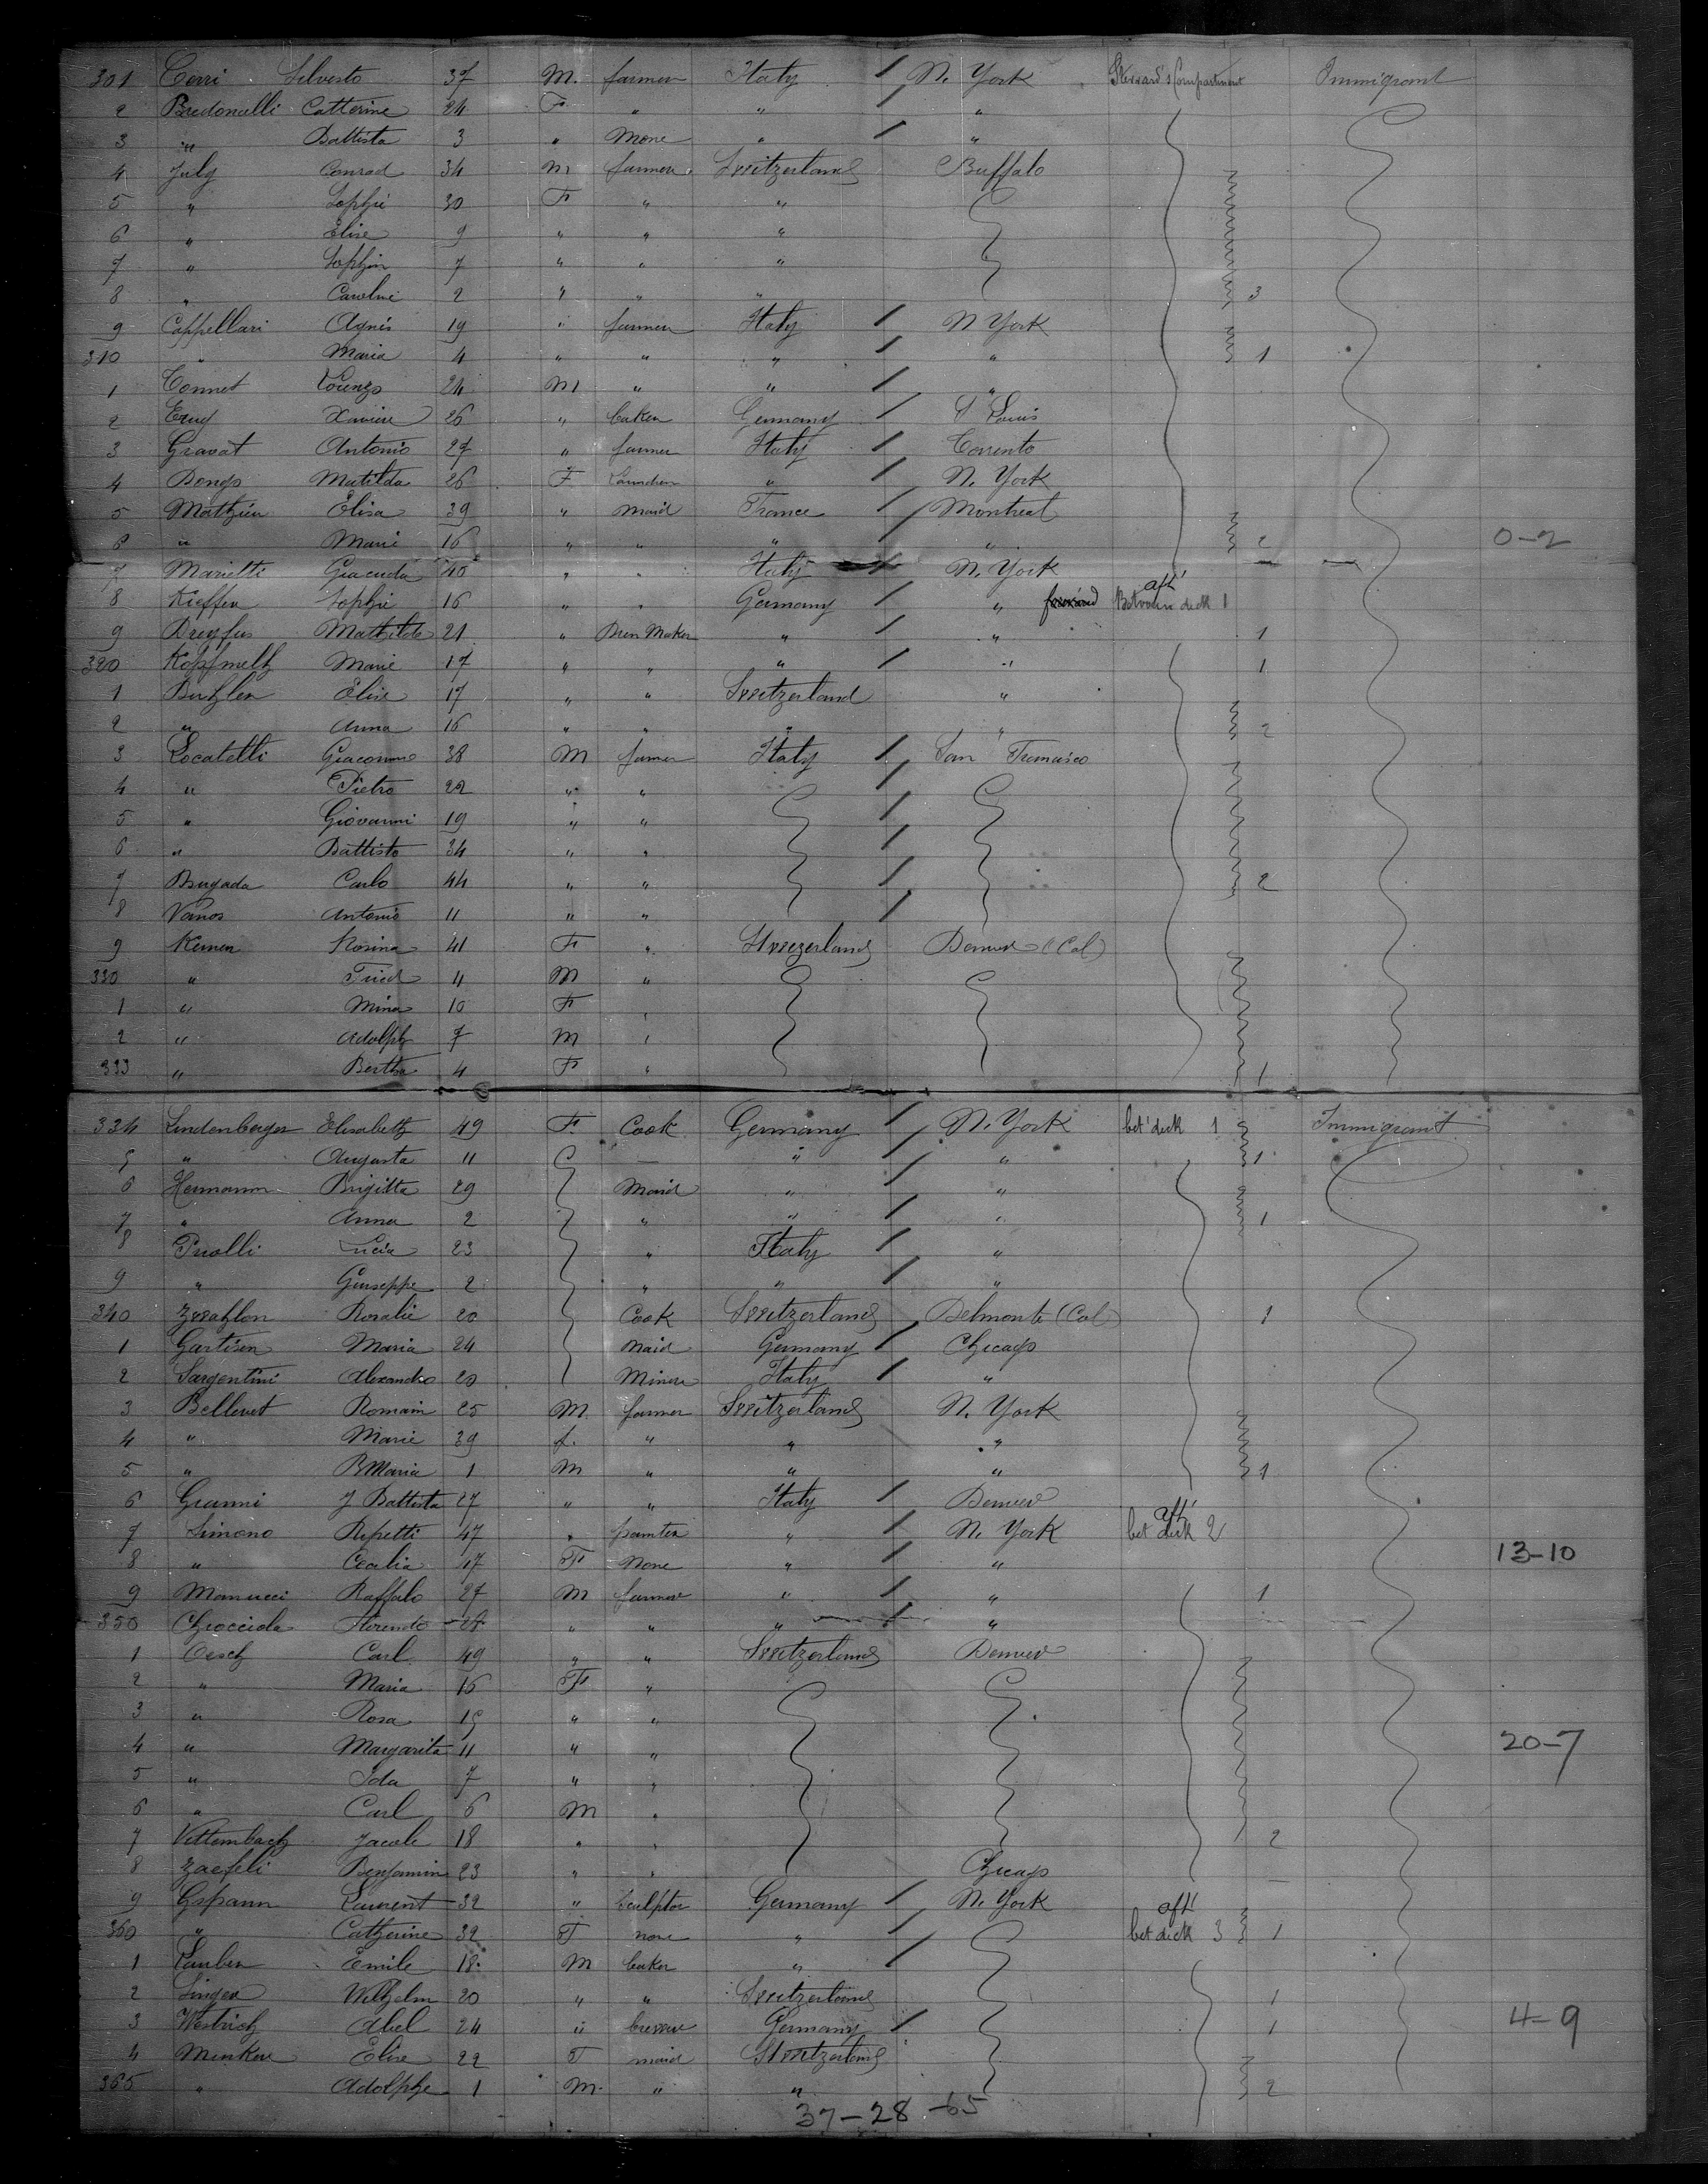 301 Cerri Silvesto 37 M. farmer Italy / N. York Steward's Compartment Immigrant
2 Bredoncelli Catterine 24 F " " / "
3 " Battista 3 " None " / "
4 July Conrad 34 M farmer Switzerland Buffalo
5 " Sophie 30 F " "
6 " Elise 9 " " "
7 " Sophia 7 " " "
8 " Caroline 2 " " " 3
9 Cappellari Agnis 19 " farmer Italy / N York
310 " Maria 4 " " " / " 1
1 Connet Lorenzo 24 M " " / "
2 Erny Xaviere 26 " baker Germany / St Louis
3 Gravat Antonio 27 " farmer Italy / Torrento
4 Dongo Matilda 26 F " / N. York
5 Mathieu Elisa 39 " maid France / Montreal
6 " Marie 16 " " " / " 2 0-2
7 Marietti Giacuda 40 " " Italy / N. York
8 Kieffer Sophie 16 " " Germany / " forward aft Between deck 1
9 Dreyfus Mathilde 21 " Dress Maker " / " 1
320 Kopfmelh Marie 17 " " " / " 1
1 Buhler Elise 17 " " Switzerland "
2 " Anna 16 " " " " 2
3 Locatelli Giacomo 38 M farmer Italy / San Francisco
4 " Pietro 22 " " /
5 " Giovanni 19 " " /
6 " Battista 34 " " /
7 Brugada Carlo 44 " " / 2
8 Vanos Antonio 11 " " /
9 Kemen Rosina 41 F " Switzerland Denver (Col)
330 " Fried 11 M "
1 " Mina 10 F "
2 " Adolph 7 M "
333 " Bertha 4 F " 1
334 Lindenberger Elisabeth 49 F Cook Germany / N. York bet' deck 1 Immigrant
5 " Augusta 11 — " / " 1
6 Hermann Brigitta 29 Maid " / "
7 " Anna 2 " " / " 1
8 Prolli Lucia 23 " Italy / "
9 " Giuseppe 2 " " / "
340 Rosalie 20 Cook Switzerland Delmonte (Cal) 1
1 Gartisen Maria 24 Maid Germany / Chicago
2 Sargentini Alexandro 20 Miner Italy / "
3 Bellevet Romain 25 M. farmer Switzerland N. York
4 " Marie 39 f. " " "
5 " B Maria 1 M " " " 1
6 Gianni J Battista 27 " " Italy / Denver
7 Simono Repetti 47 " painter " / N. York aft bet deck 2
8 " Cecilia 17 F None " / " 13-10
9 Manucci Raffalo 27 M farmer " / " 1
350 Chioccida Florendo 28 " " " / "
1 Oesch Carl 49 " " Switzerland Denver
2 " Maria 16 F "
3 " Rosa 15 " "
4 " Margarita 11 " " 20-7
5 " Ida 7 " "
6 " Carl 6 M "
7 Vittembach Jacob 18 " " 2
8 Zaefeli Benjamin 23 " " Chicago
9 Gspann Laurent 32 " Sculptor Germany / N. York
360 " Catherine 32 F none " / aft bet deck 3 1
1 Lauber Emile 18 M baker " /
2 Singer Wilhelm 20 " " Switzerland 1
3 Westrich Abel 24 " brewer Germany / 1 4-9
4 Minker Elise 22 F maid Switzerland
365 " Adolphe 1 M. " " 2
37-28-65